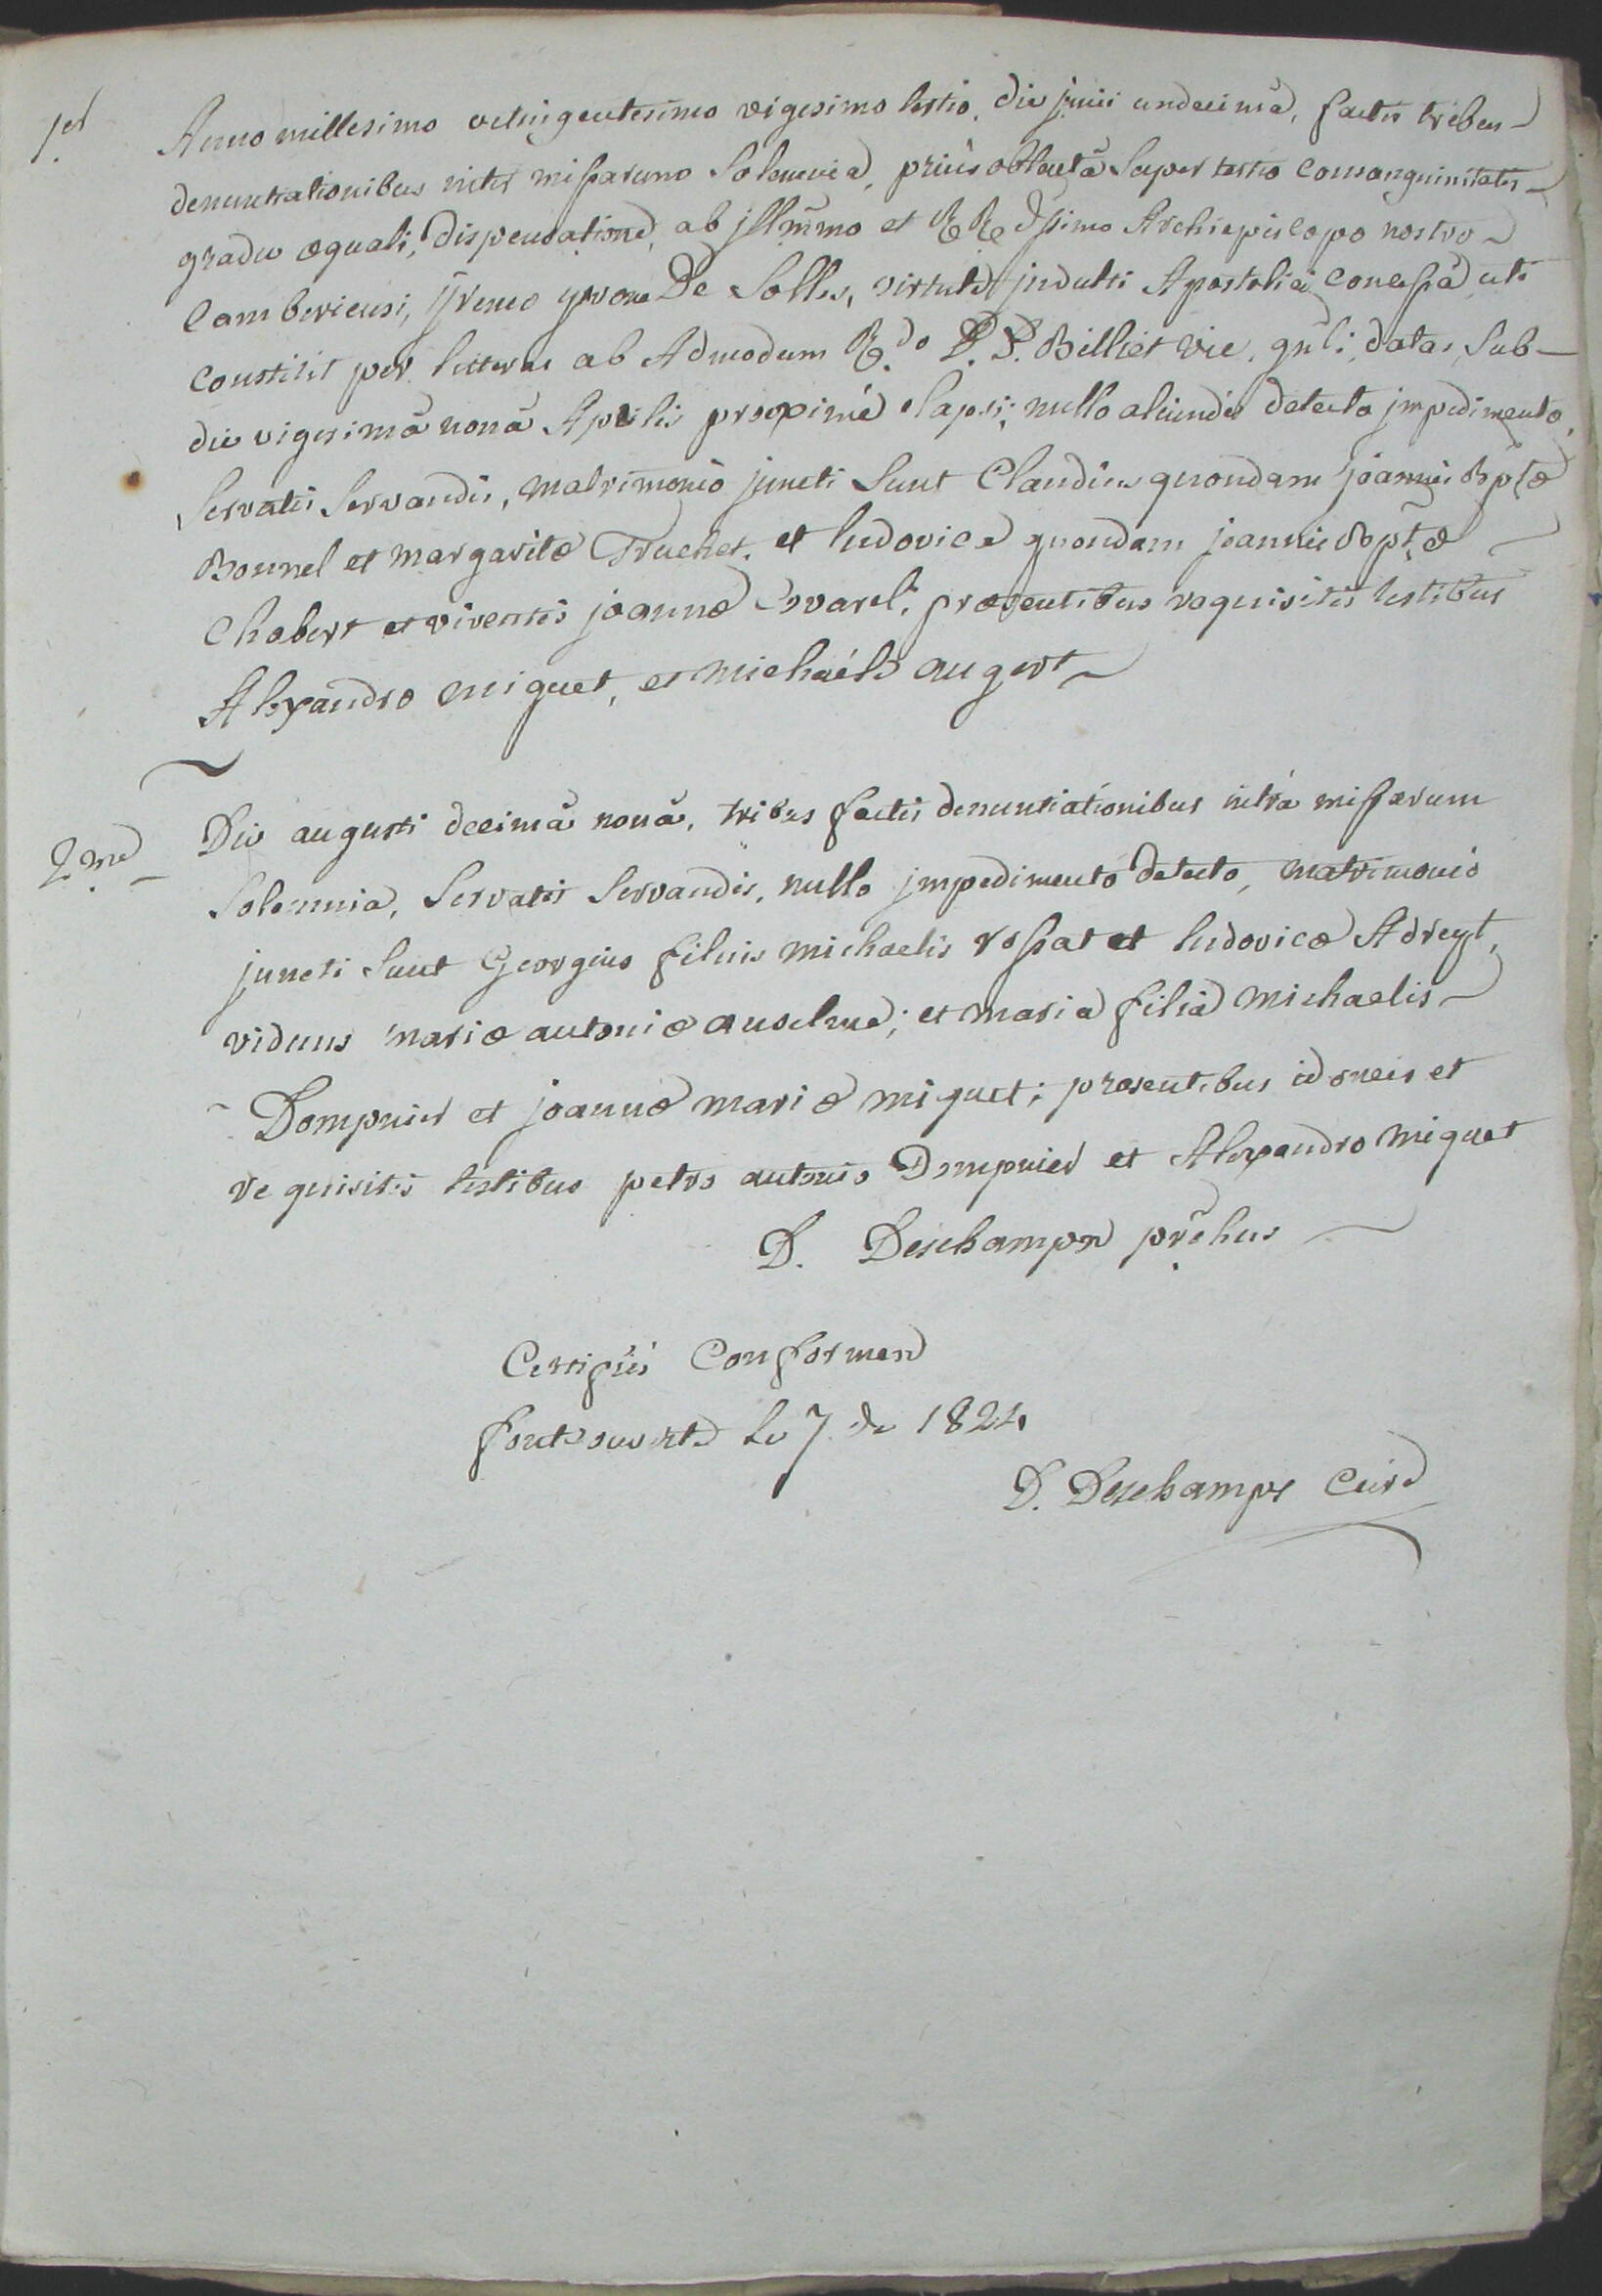 1er
Anno millesimo octingentesimo vigesimo tertio, die junii undecimâ, factis tribus
denuntiationibus inter missarum Solemnia, priùs obtentâ Super tertio Consanguinitatis
gradu æquali, dispensatione, ab jllmmo et RRdssimo Archiepiscopo nostro
Camberiensi, jreneo yvone De Solles, virtute jndulti Apostolici Concessâ uti
Constitit per litteras ab Admodum Rdo D. D. Billiet vic. gnli, datas, Sub
die vigesimâ nonâ Aprilis proximè elapsi; nullo aliundè detecto jmpedimento,
Servatis Servandis, matrimonio juncti Sunt Claudius quondam joannis Bptæ
Bonnel et margaritæ Truchet, et ludovica quondam joannis Bptæ
Chabert et viventis joannæ Covarel; præsentibus requisitis testibus
Alexandro miguet, et michaële augert
2me
Die augusti decimâ nonâ, tribus factis denuntiationibus intrà missarum
Solemnia, Servatis Servandis, nullo jmpedimento detecto, matrimonio
juncti Sunt Georgius filius michaelis rossat et ludovicæ Adreyt,
viduus mariæ antoniæ anselme; et maria filia michaelis
Dompnier et joannæ mariæ miguet; præsentibus idoneis et
requisitis testibus petro antonio Dompnier et Alexandro miguet
D. Deschamps prchus
Certifiés Conformes
fontcouverte le 7 1824
D. Deschamps Curé